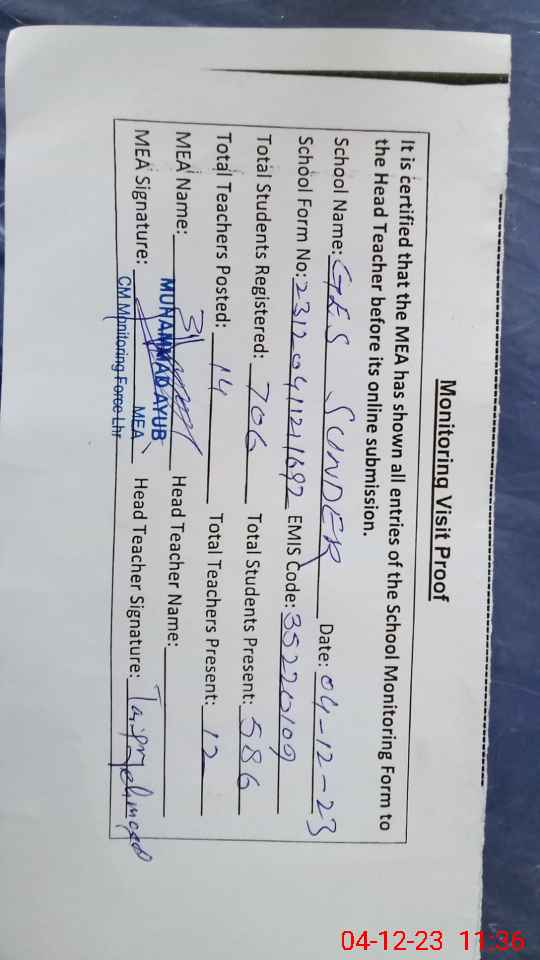 Monitoring Visit Proof
It is certified that the MEA has shown all entries of the School Monitoring Form to
the Head Teacher before its online submission.
School Name: GES SUNDER Date: 04-12-23
School Form No: 231204112111692 EMIS Code: 35220109
Total Students Registered: 706 Total Students Present: 586
Total Teachers Posted: 14 Total Teachers Present: 12
MEA Name: Head Teacher Name:
MUHAMMAD AYUB
MEA Signature: Head Teacher Signature:
MEA
CM Monitoring Force Lhr
04-12-23 11:36